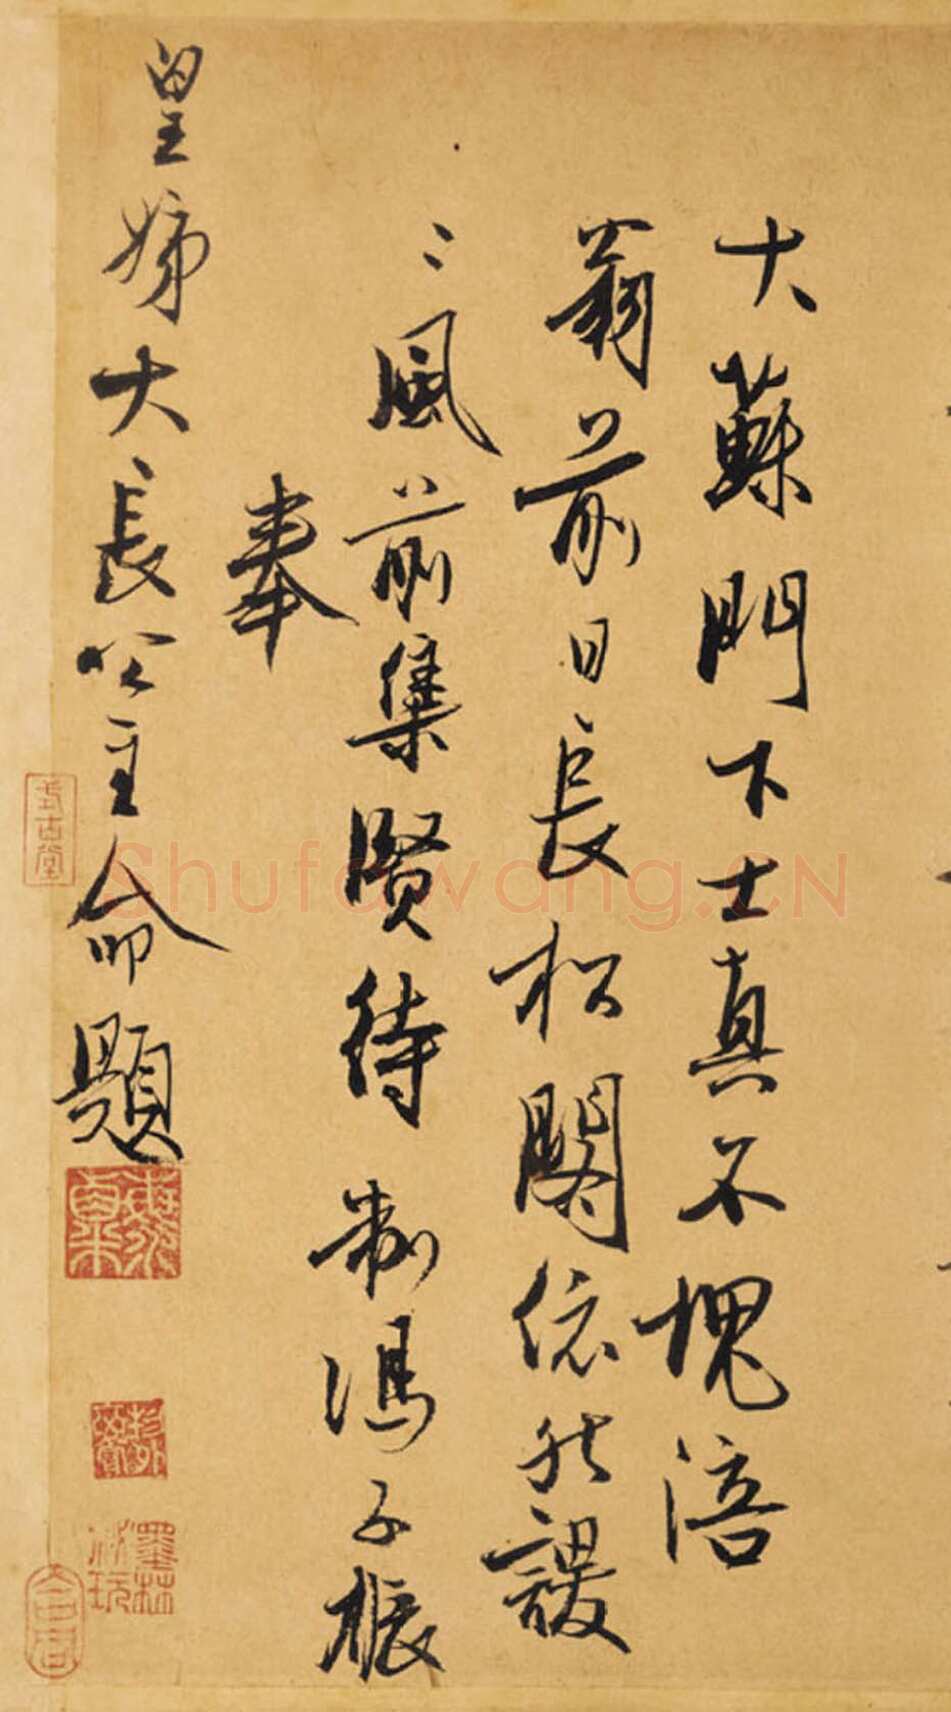 大蘇門下士真不愧涪
翁前日長松閣依然謖
〻風前集賢待制馮子振
奉
皇姊大長公主命題
式古堂
Shufawang.CN